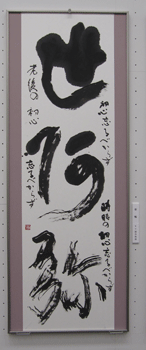 世阿弥
初心忘るべからず
時々の初心忘るべからず
老後の初心
忘るべからず